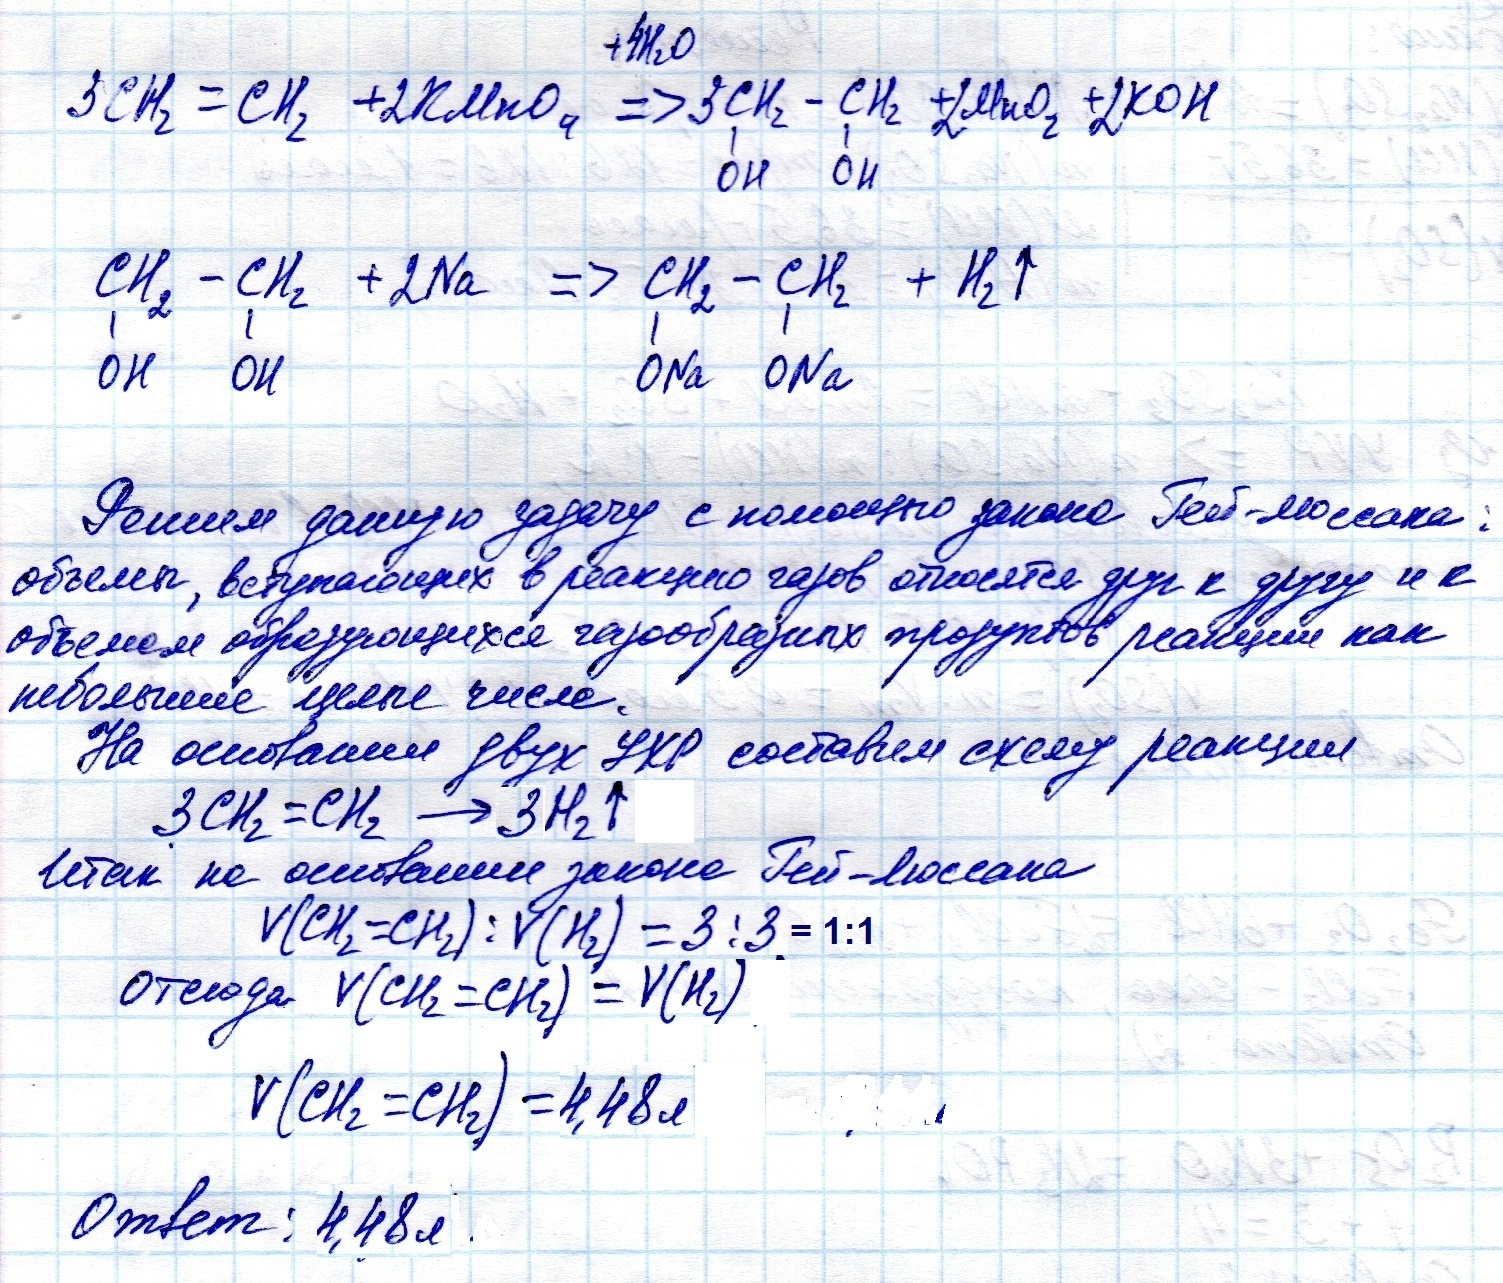 +4H₂O
3CH₂ = CH₂ +2KMnO₄ => 3CH₂ - CH₂ +2MnO₂ +2KOH
OH OH
CH₂ - CH₂ +2Na => CH₂ - CH₂ + H₂↑
OH OH ONa ONa
Решим данную задачу с помощью закона Гей-Люссака:
объемы, вступающих в реакцию газов относятся друг к другу и к
объемам образующихся газообразных продуктов реакции как
небольшие целые числа.
На основании двух УХР составим схему реакции
3CH₂=CH₂ → 3H₂↑
Итак на основании закона Гей-Люссака
V(CH₂=CH₂) : V(H₂) = 3 : 3 = 1:1
Отсюда V(CH₂=CH₂) = V(H₂)
V(CH₂=CH₂) = 4,48л
Ответ: 4,48л.